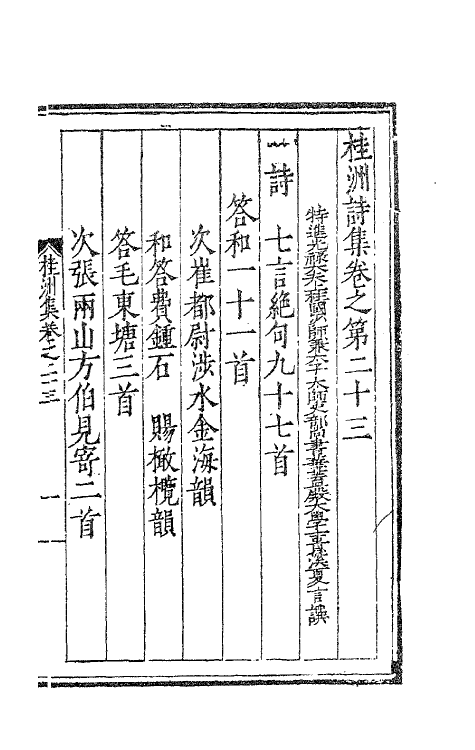 桂洲詩集卷之第二十三
特進光祿大夫上柱國少師兼太子太師吏部尚書華蓋殿大學士貴溪夏言譔
詩　七言絕句九十七首
答和一十一首
次崔都尉涉水金海韻
和答費鍾石　賜橄欖韻
答毛東塘三首
次張兩山方伯見寄二首
桂洲集卷之二十三
一